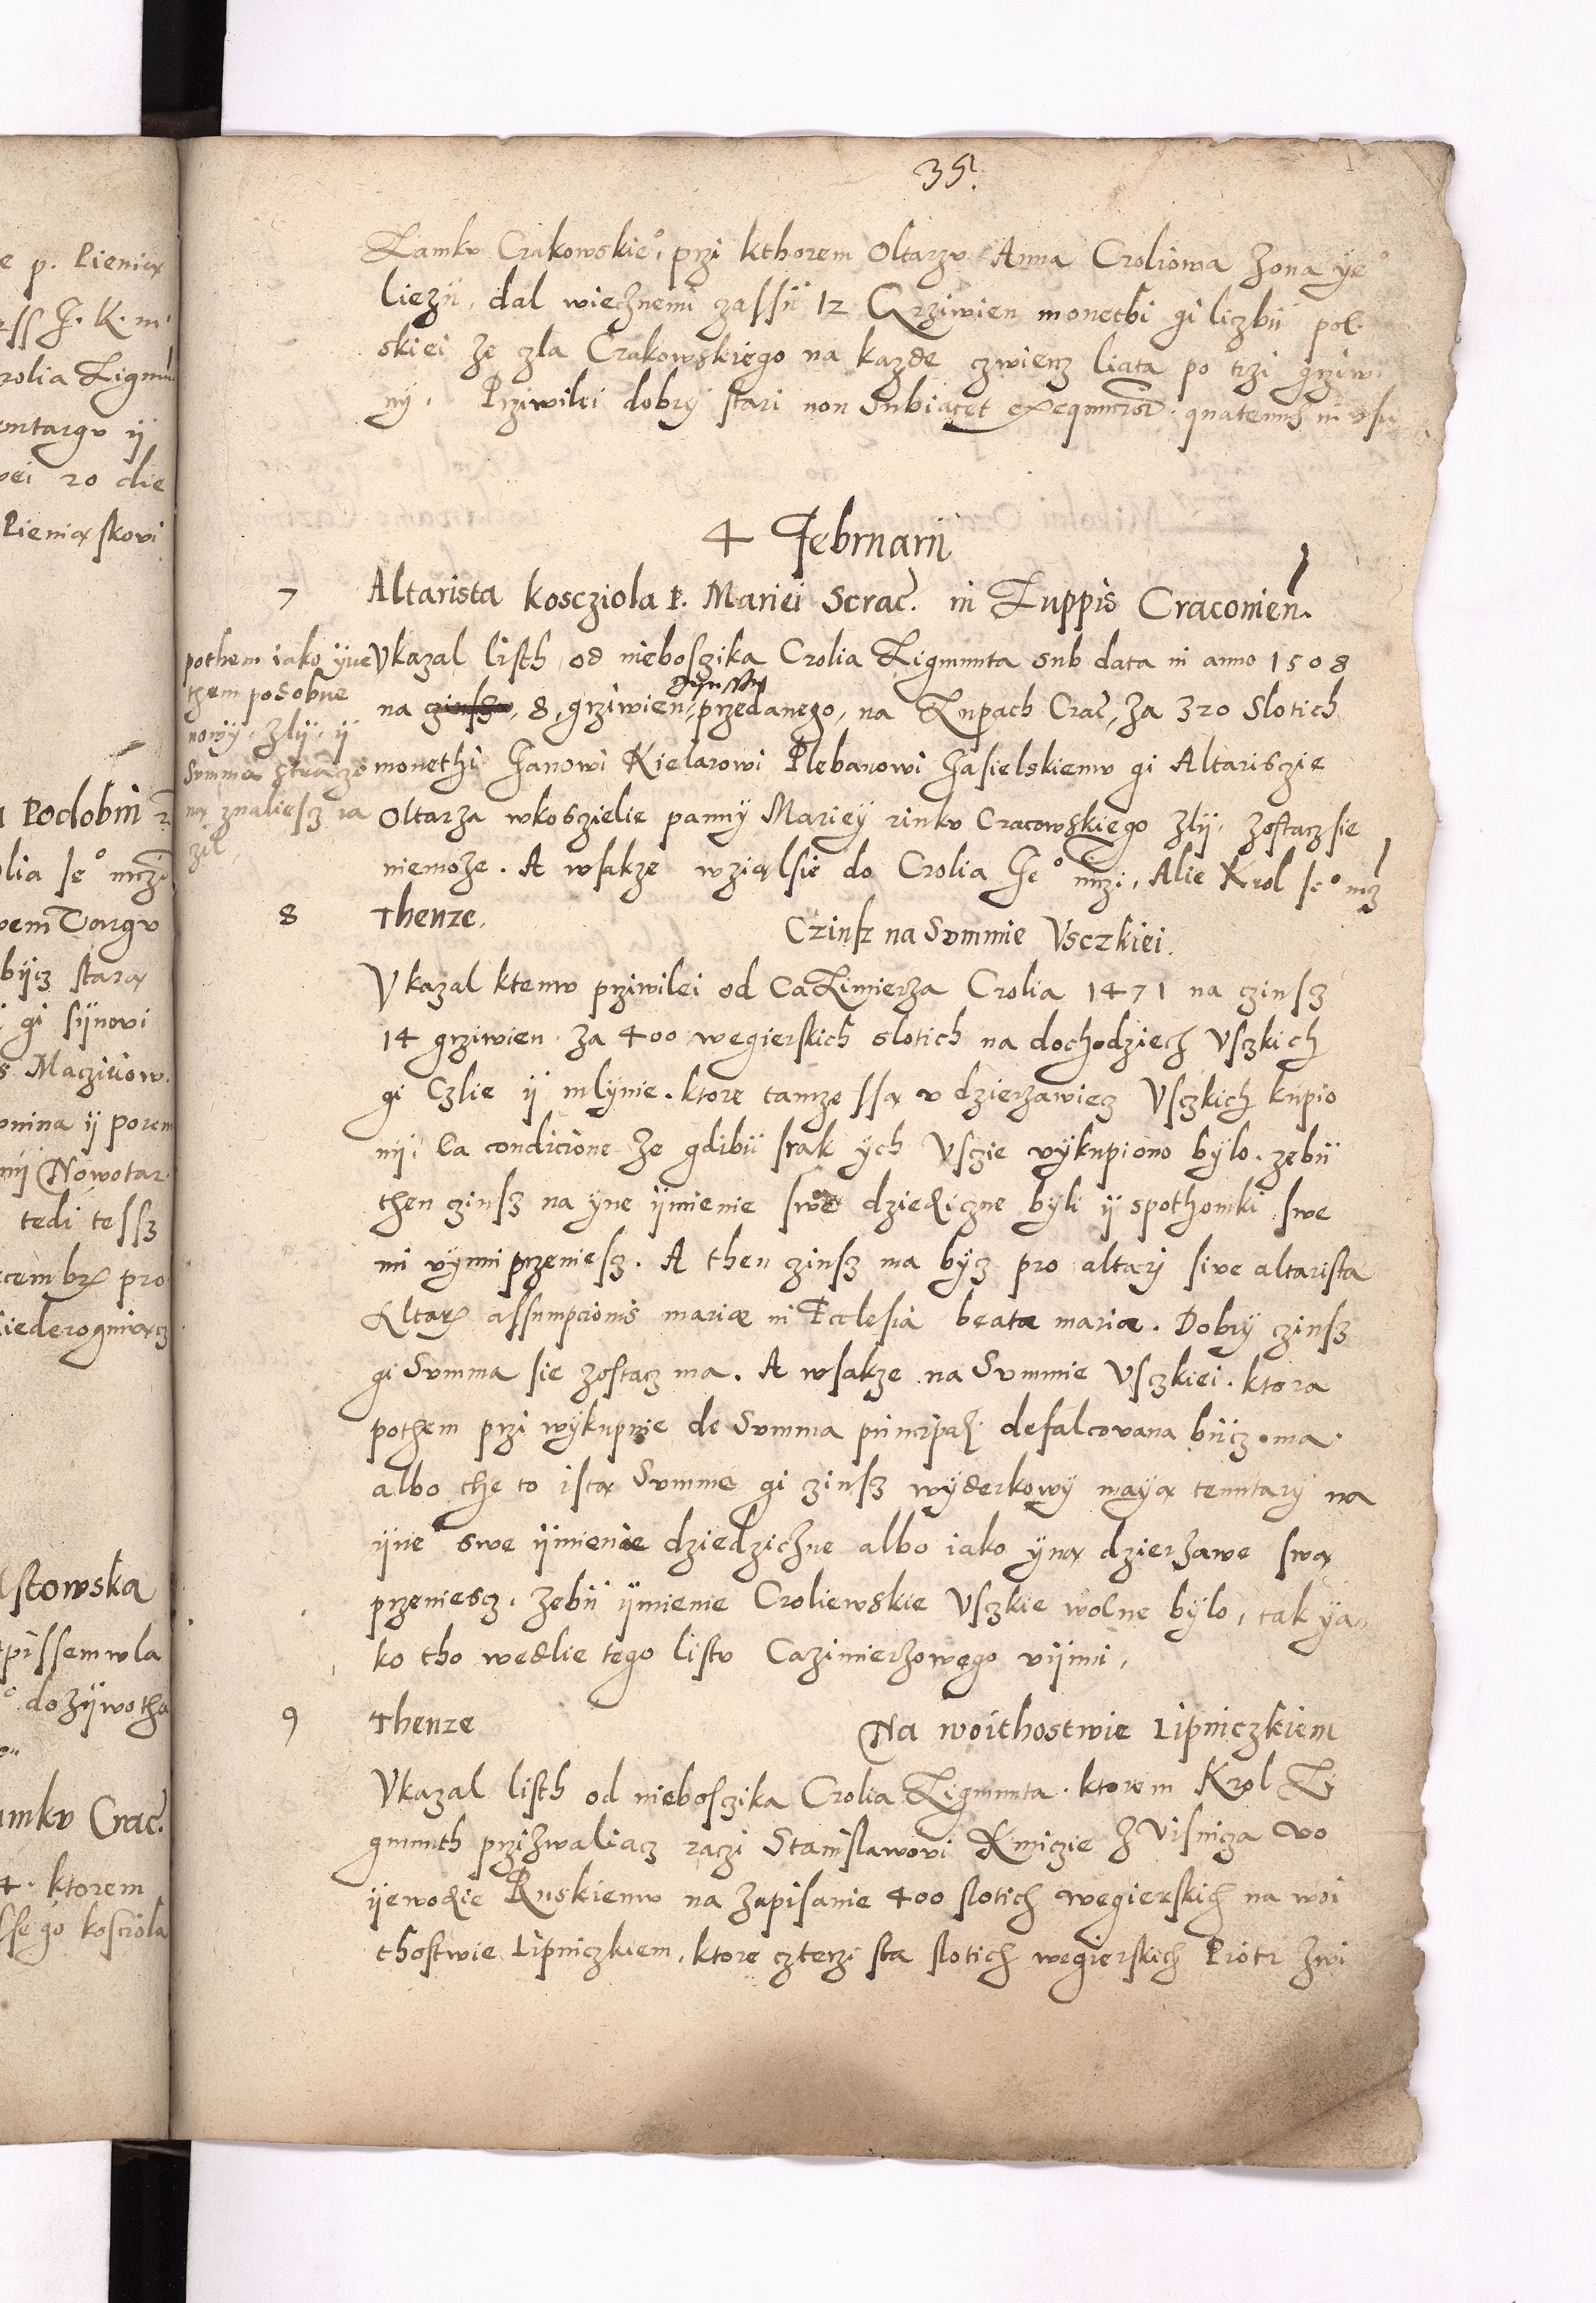 35.
Zamkv Crakowskie°, przi kthorem Oltarzv Anna Croliowa Zona ye°
liezÿ, dal wiecznemi czassÿ 12 Grziwien monethi gi liczbÿ pol
skiei ze cla Crakowskiego na kazde czwiercz liata po trzi grziw
nÿ. Przÿwilei dobrÿ stari non Subiacet quatenus in vsu
4 Februarii
7 Altarista kosczìola P. Mariei Scrac. in Zuppis Cracouien.
Vkazal listh od niebosczika Crolia Zigmunta sub data in anno 1508
na czinszv, 8, grziwien, czinszv przedanego, na Zupach Crac, za 320 Slotich
monethi Janowi Kielarowi Plebanowi Jasielskiemv gi Altarisczie
Oltarza wkosczielie pannÿ Marieÿ rinkv Cracowskiego Zlÿ, zostacz sie
niemoze. A wsakze wziąlsie do Crolia Je° mczi, Alie Krol Je° mcz
pothem iako ÿne
them podobne
nowÿ, zlÿ, ÿ
Summa straczo
ną znaliesz ra
zil,
8 Thenze, Czinsz na Summie Vsczkiei.
Vkazal ktemv prziwilei od CaZimierza Crolia 1471 na czinsz
14 grziwien za 400 wegierskich slotich na dochodziech Vsczkich
gi Czlie ÿ mlÿnie. ktore tamze ssą v dzierzawiecz Vsczkich kupio
nÿ, Ca condicione ze gdibÿ srak ÿch Vsczie vÿkupiono bÿlo. zebÿ
then czinsz na ÿne ÿmienie swe dziediczne bÿli ÿ spothomki swe
mi vÿnni przeniesz. A then czinsz ma bÿcz pro altarj sive altarista
Altaris assumpcionis mariæ in Ecclesia beatæ mariæ. Dobrÿ czinsz
gi Summa sie zostacz ma. A wsakze na Summie Vsczkiei. ktora
pothem przi wÿkupnie de Summa principali defalcovana bÿcz ma.
albo the to istą Summe gi czinsz wÿderkowÿ maÿą tenutarÿ na
ÿne swe ÿmienie dziedziczne albo iako ÿną dzierzawe swą
przeniescz. Zebÿ ÿmienie Croliewskie Vsczkie wolne bÿlo, tak ÿa
ko tho wedlie tego listv Cazimierzowego vÿnni,
9 Thenze Na woithostwie Lipniczkiem
Vkazal listh od niebosczika Crolia Zigmunta. ktorem Krol Zi
gmunth przizwaliacz raczi Stanislawowi Kmiczie Z Visnicza vo
ÿewodzie Ruskiemv na zapisanie 400 slotich wegierskich na woi
thostwie Lipniczkiem, ktore czterzi sta slotich wegierskich Piotr Zwi